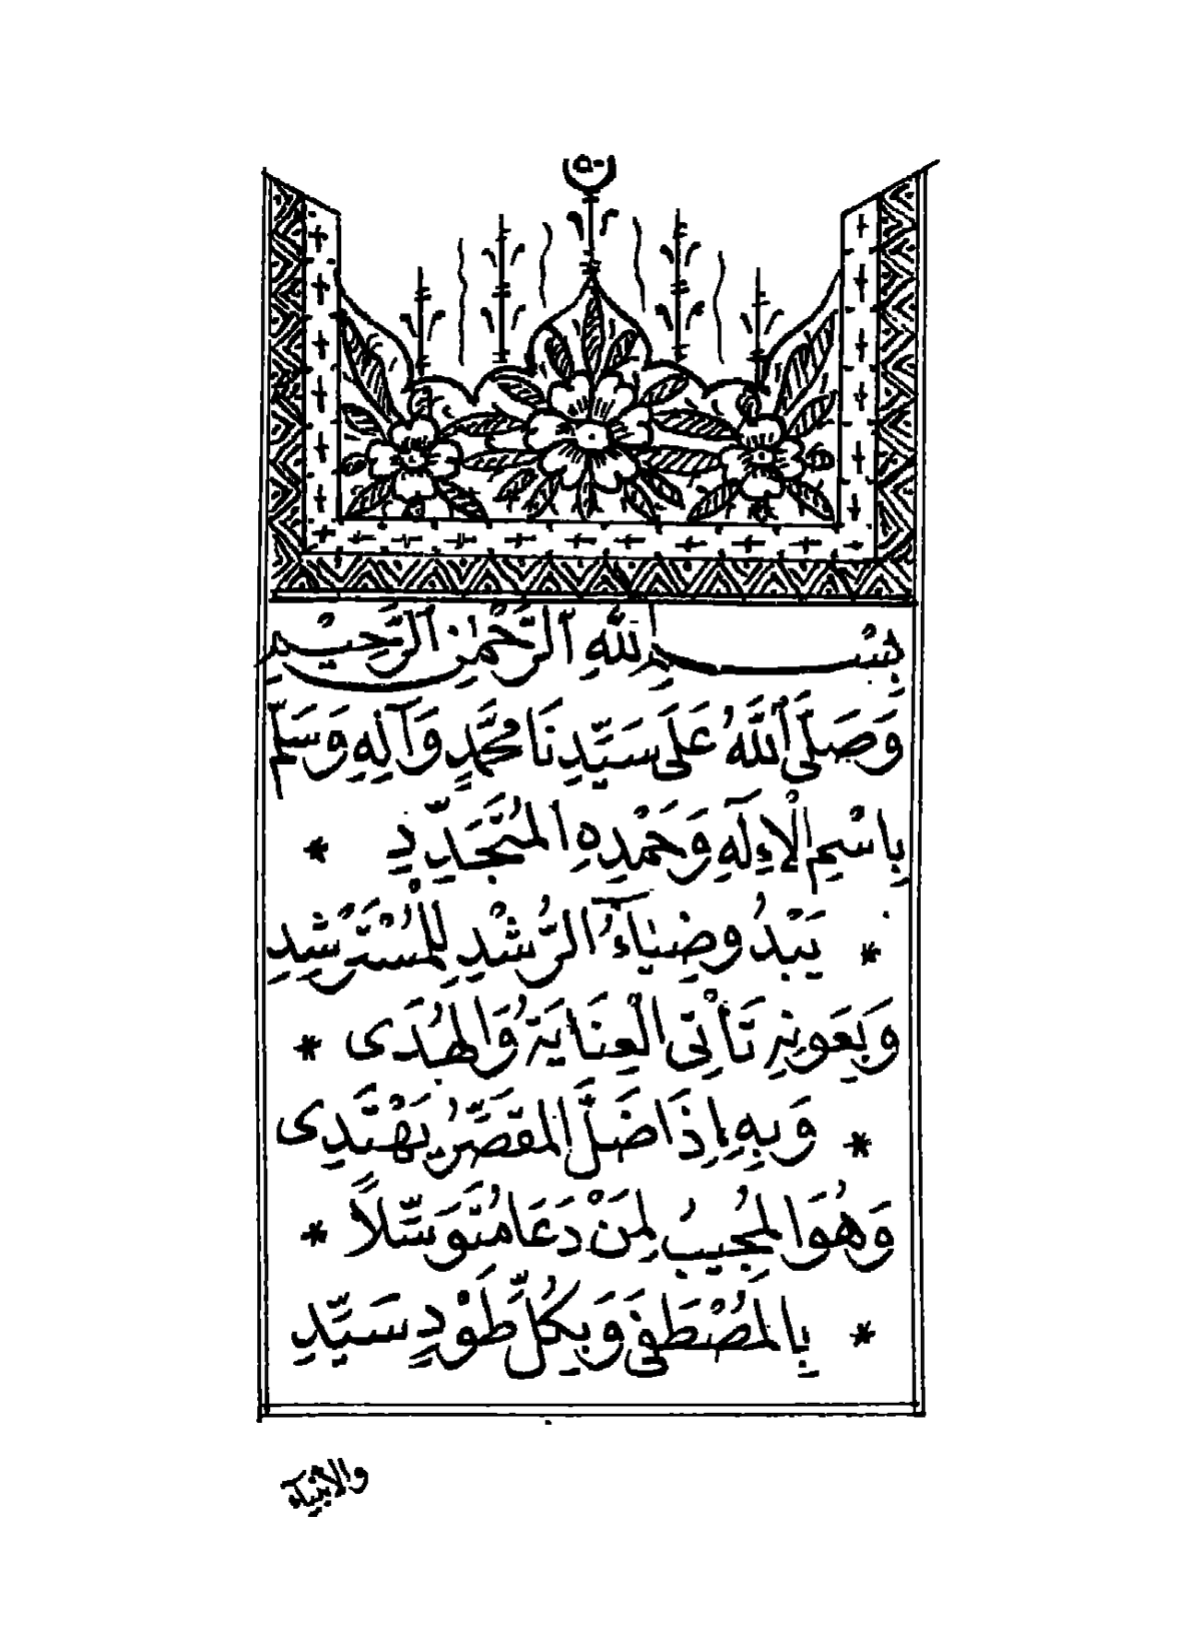 بِسْمِ اللهِ ٱلرَّحْمٰنِ ٱلرَّحِيْمِ
وَصَلَّى ٱللَّهُ عَلَى سَيِّدِنَا مُحَمَّدٍ وَآلِهِ وَسَلِّمْ
بِاسْمِ الْإِلَهِ وَحَمْدِهِ الْمُتَجَدِّدِ *
* يَبْدُو ضِيَآءُ الرُّشْدِ لِلْمُسْتَرْشِدِ
وَبِعَوْنِهِ تَأْتِى الْعِنَايَةُ وَالْهُدَى *
* وَبِهِ إِذَا ضَلَّ الْمُقَصِّرُ يَهْتَدِى
وَهُوَ الْمُجِيبُ لِمَنْ دَعَا مُتَوَسِّلاً *
* بِالْمُصْطَفَى وَبِكُلِّ طَوْدٍ سَيِّدِ
والأنبياء